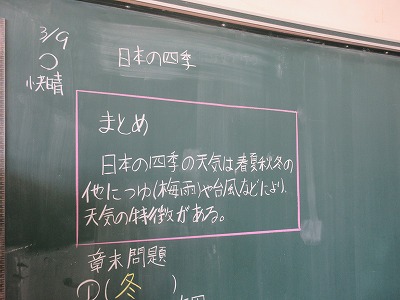 3/9
○
快晴
日本の四季
まとめ
日本の四季の天気は春夏秋冬の
他につゆ(梅雨)や台風などにより、
天気の特徴がある。
章末問題
①(冬 )